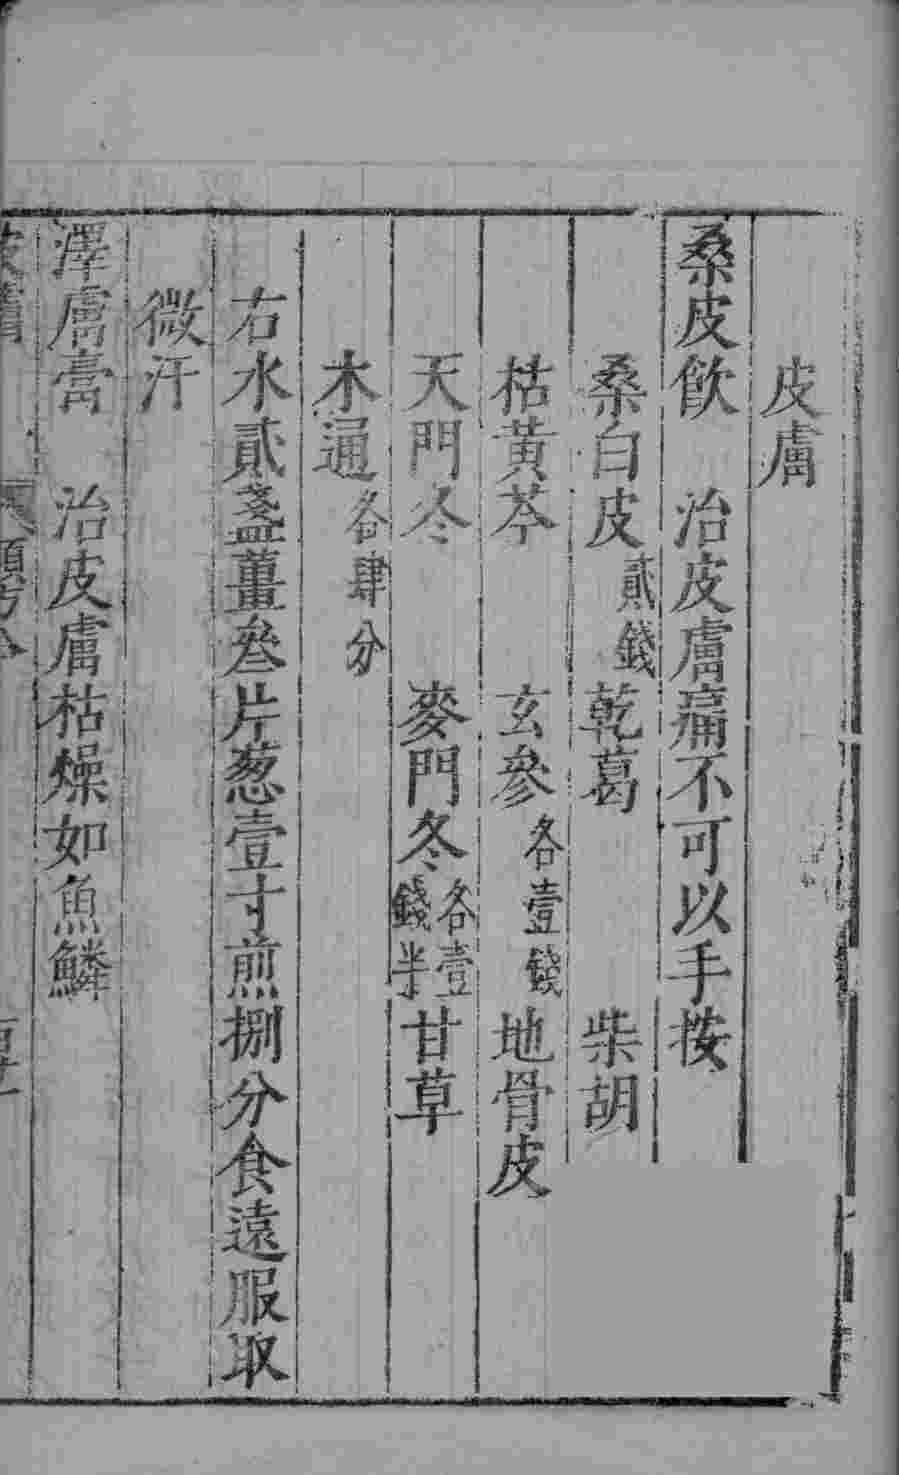 皮膚
桑皮飲　治皮膚痛不可以手按
桑白皮貳錢　乾葛　柴胡
枯黃芩　玄參各壹錢　地骨皮
天門冬　麥門冬各壹錢半　甘草
木通各肆分
右水貳盞薑叄片葱壹寸煎捌分食遠服取
微汗
澤膚膏　治皮膚枯燥如魚鱗